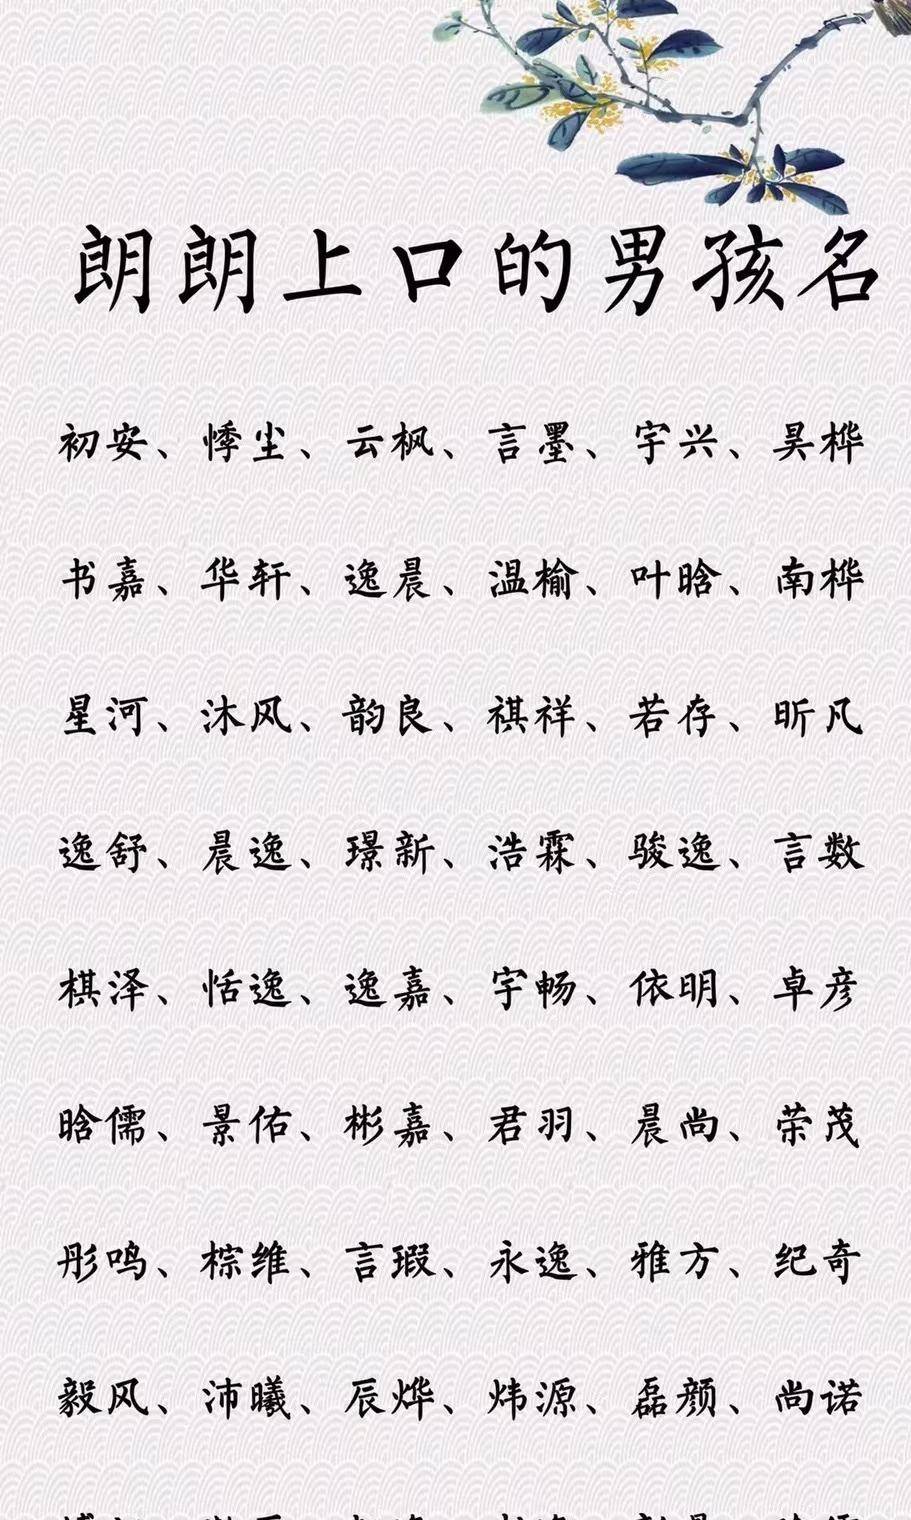 朗朗上口的男孩名
初安、悸尘、云枫、言墨、宇兴、昊桦
书嘉、华轩、逸晨、温榆、叶晗、南桦
星河、沐风、韵良、祺祥、若存、昕凡
逸舒、晨逸、璟新、浩霖、骏逸、言数
棋泽、恬逸、逸嘉、宇畅、依明、卓彦
晗儒、景佑、彬嘉、君羽、晨尚、荣茂
彤鸣、棕维、言瑕、永逸、雅方、纪奇
毅风、沛曦、辰烨、炜源、磊颜、尚诺